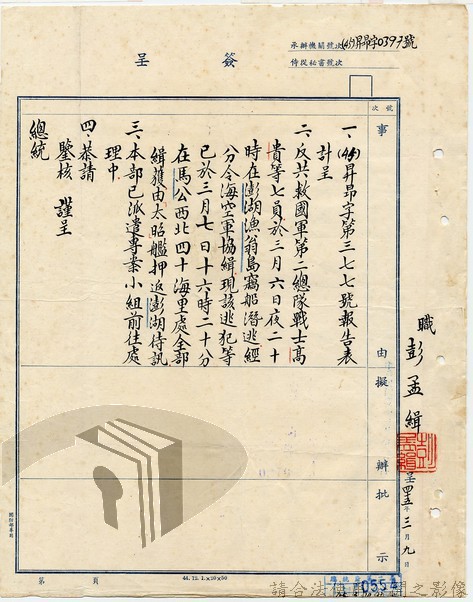 簽呈
承辦機關號次(45)昇昂字0397號
侍從祕書號次
號次
事由
擬辦
批示
一、(45)昇昂字第三七七號報告表
計呈
二、反共救國軍第二總隊戰士高
貴等七員於三月六日夜二十
時在澎湖漁翁島竊船潛逃經
分令海空軍協緝現該逃犯等
已於三月七日十六時二十分
在馬公西北四十海里處全部
緝獲由太昭艦押返澎湖待訊
三、本部已派遣專案小組前往處
理中
四、恭請
鑒核 謹呈
總統
職彭孟緝
呈四五年三月九日
第 頁
0554
請合法使用公開之影像